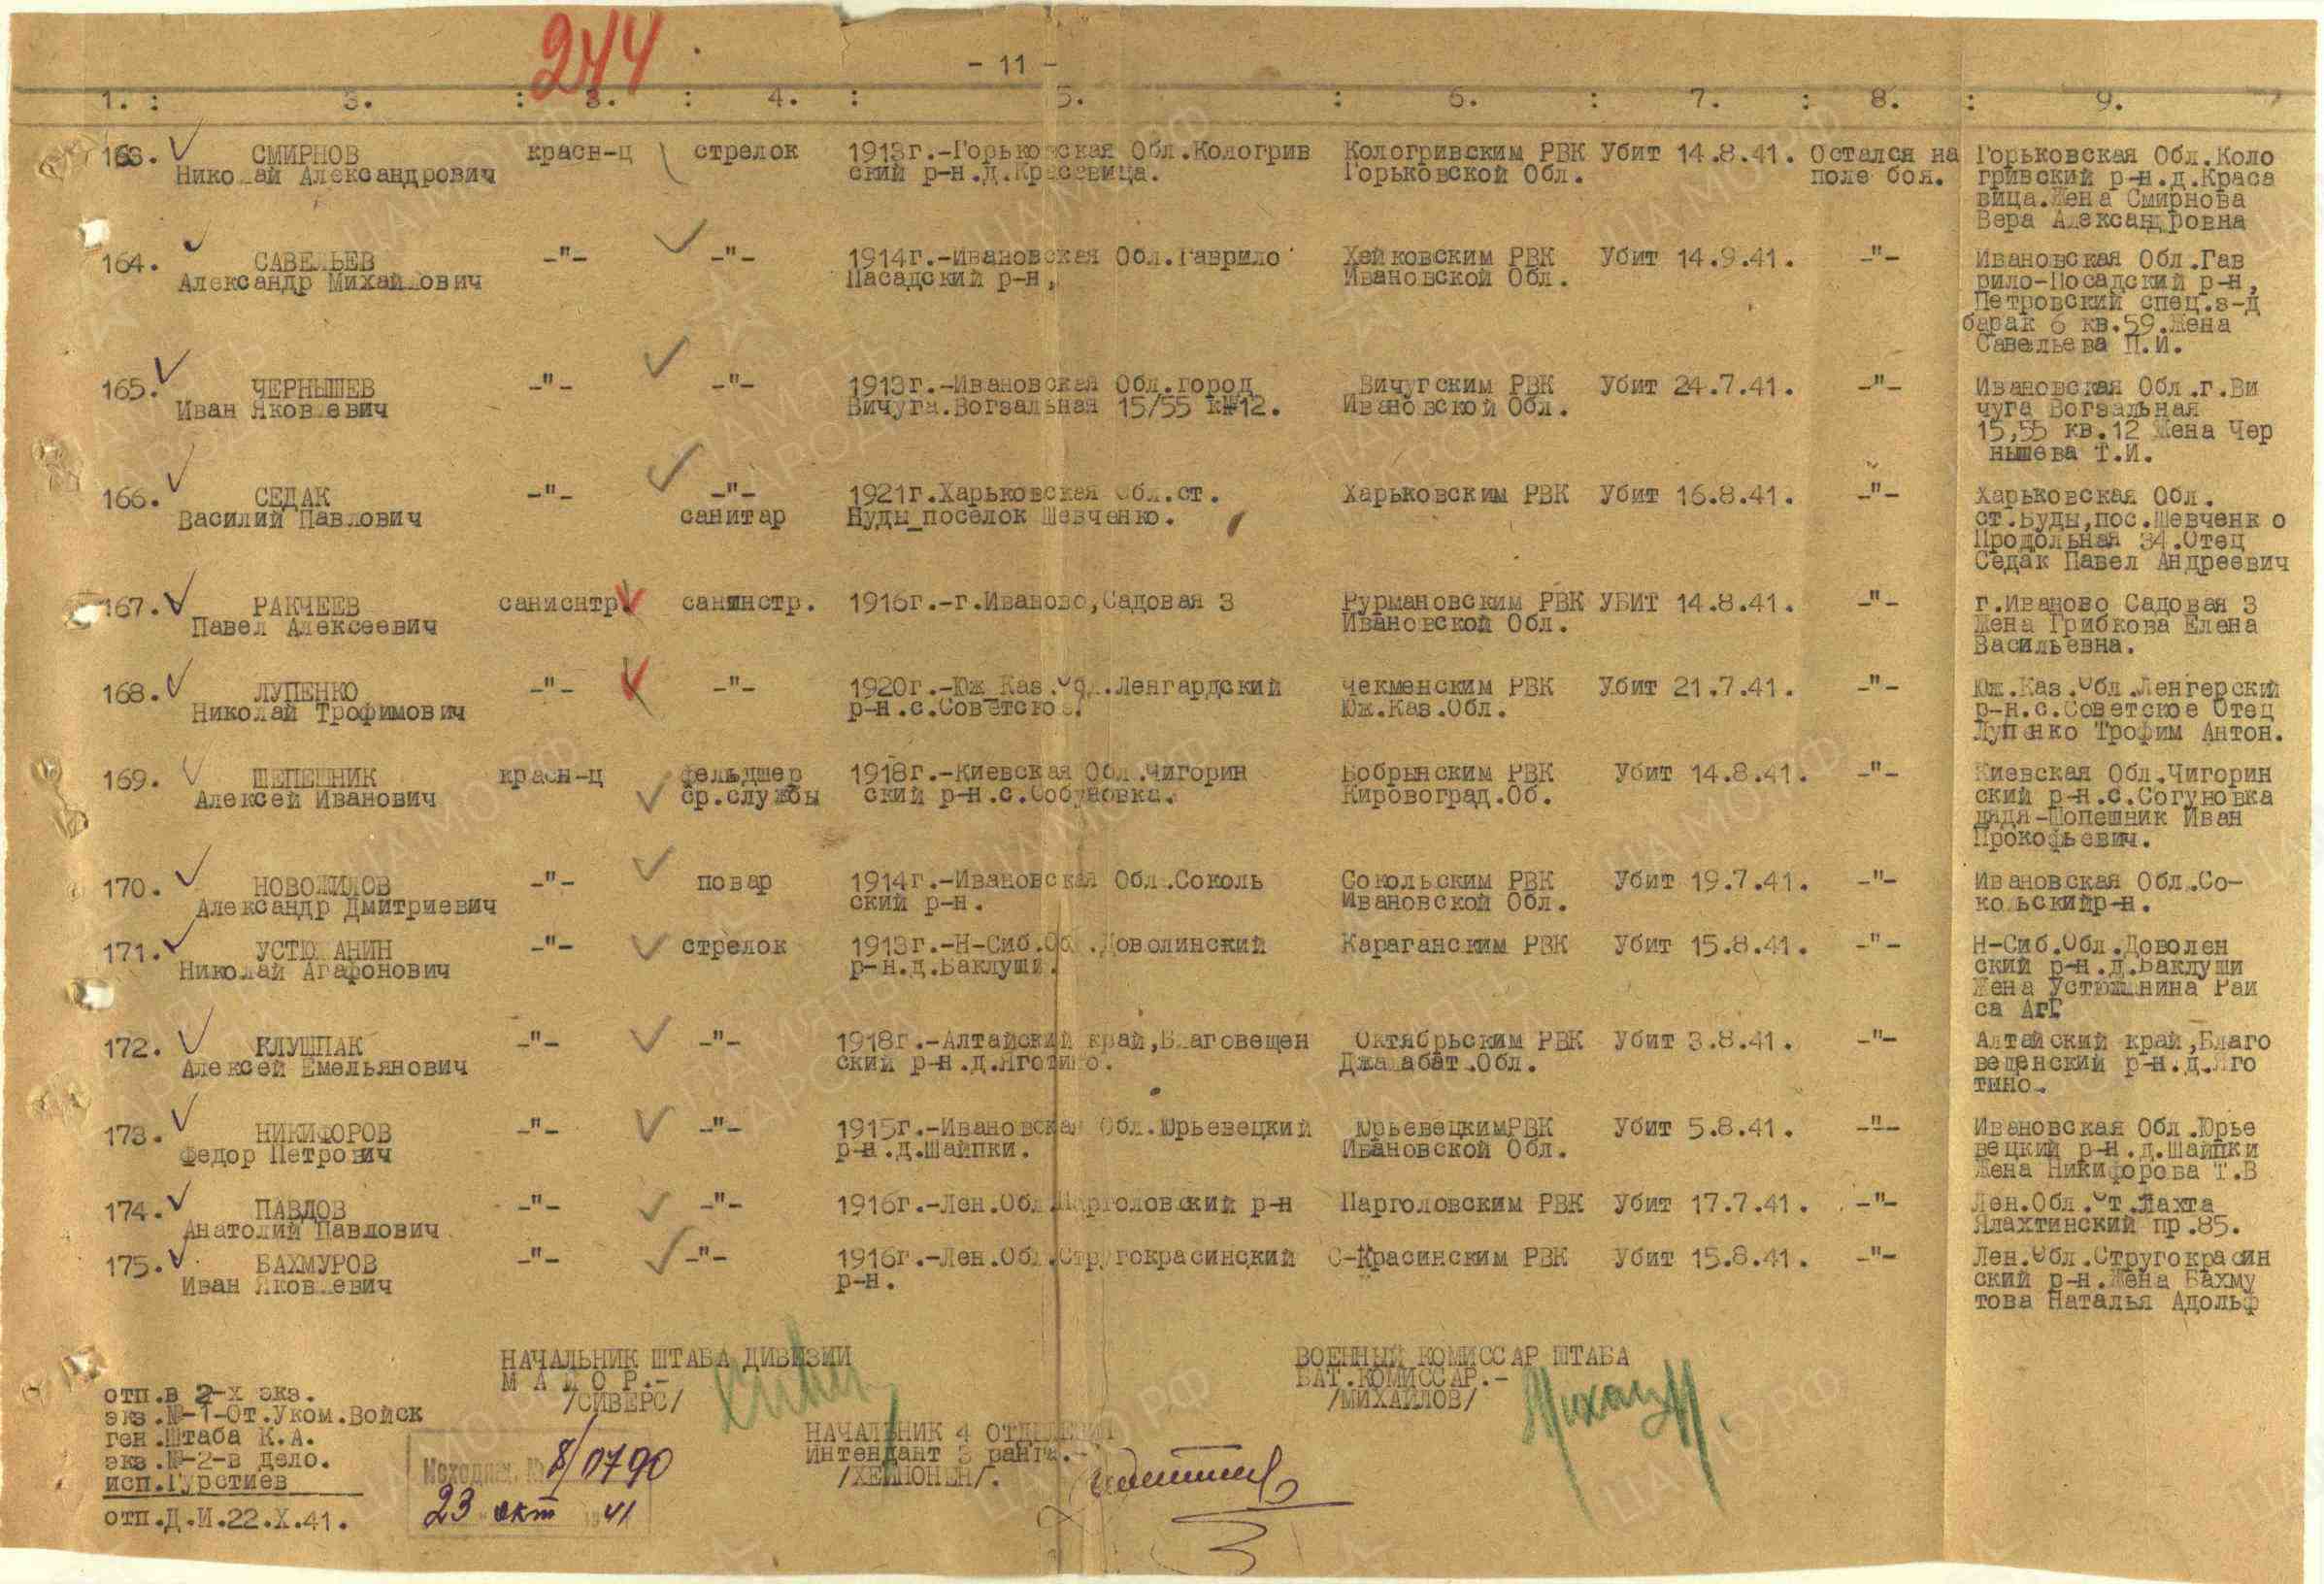 244
- 11 -
1. : 3. : 3. : 4. : 5. : 6. : 7. : 8. : 9.
163. СМИРНОВ красн-ц стрелок 1913г.-Горьковская Обл.Кологрив Кологривским РВК Убит 14.8.41. Остался на Горьковская Обл.Коло
Николай Александрович ский р-н.д.Красавица. Горьковской Обл. поле боя. гривский р-н.д.Краса
вица.Жена Смирнова
Вера Александровна
164. САВЕЛЬЕВ -"- -"- 1914г.-Ивановская Обл.Гаврило Хейковским РВК Убит 14.9.41. -"- Ивановская Обл.Гав
Александр Михайлович Пасадский р-н, Ивановской Обл. рило-Посадский р-н,
Петровский спец.з-д
барак 6 кв.59.Жена
Савельева П.И.
165. ЧЕРНЫШЕВ -"- -"- 1913г.-Ивановская Обл.город Вичугским РВК Убит 24.7.41. -"- Ивановская Обл.г.Ви
Иван Яковлевич Вичуга.Вогзальная 15/55 к№12. Ивановской Обл. чуга Вогзальная
15,55 кв.12 Жена Чер
нышева Т.И.
166. СЕДАК -"- -"- 1921г.Харьковская Обл.ст. Харьковским РВК Убит 16.8.41. -"- Харьковская Обл.
Василий Павлович санитар Нуды_поселок Шевченко. ст.Буды,пос.Шевченк о
Продольная 34.Отец
Седак Павел Андреевич
167. РАКЧЕЕВ саниснтр. санинстр. 1916г.-г.Иваново,Садовая 3 Фурмановским РВК УБИТ 14.8.41. -"- г.Иваново Садовая 3
Павел Алексеевич Ивановской Обл. Жена Грибкова Елена
Васильевна.
168. ЛУПЕНКО -"- -"- 1920г.-Юж Каз.Обл.Ленгардский Чекменским РВК Убит 21.7.41. -"- Юж.Каз.Обл.Ленгерский
Николай Трофимович р-н.с.Советское. Юж.Каз.Обл. р-н.с.Советское Отец
Лупенко Трофим Антон.
169. ШЕПЕШНИК красн-ц фельдшер 1918г.-Киевская Обл.Чигорин Бобрынским РВК Убит 14.8.41. -"- Киевская Обл.Чигорин
Алексей Иванович ср.службы ский р-н.с.Собуновка. Кировоград.Об. ский р-н.с.Согуновка
дядя-Шопешник Иван
Прокофьевич.
170. НОВОЖИЛОВ -"- повар 1914г.-Ивановская Обл.Соколь Сокольским РВК Убит 19.7.41. -"- Ивановская Обл.Со-
Александр Дмитриевич ский р-н. Ивановской Обл. кольскийр-н.
171. УСТЮЖАНИН -"- стрелок 1913г.-Н-Сиб.Обл.Доволинский Караганским РВК Убит 15.8.41. -"- Н-Сиб.Обл.Доволен
Николай Агафонович р-н.д.Баклуши. ский р-н.д.Баклуши
Жена Устюжанина Раи
са Агг
172. КЛУШПАК -"- -"- 1918г.-Алтайский край,Благовещен Октябрьским РВК Убит 3.8.41. -"- Алтайский край,Благо
Алексей Емельянович ский р-н.д.Яготино. Джалабат.Обл. вещенский р-н.д.Яго
тыно.
173. НИКИФОРОВ -"- -"- 1915г.-Ивановская Обл.Юрьевецкий ЮрьевецкимРВК Убит 5.8.41. -"- Ивановская Обл.Юрье
Федор Петрович р-н.д.Шайпки. Ивановской Обл. вецкий р-н.д.Шайпки
Жена Никифорова Т.В
174. ПАВЛОВ -"- -"- 1916г.-Лен.Обл.Парголовский р-н Парголовским РВК Убит 17.7.41. -"- Лен.Обл.Ст.Лахта
Анатолий Павлович Ялахтинский пр.85.
175. БАХМУРОВ -"- -"- 1916г.-Лен.Обл.Стругокрасинский С-Красинским РВК Убит 15.8.41. -"- Лен.Обл.Стругокрасин
Иван Яковлевич р-н. ский р-н.Жена Бахму
това Наталья Адольф
НАЧАЛЬНИК ШТАБА ДИВИЗИИ
М А Й О Р.-
/СИВЕРС/
ВОЕННЫЙ КОМИССАР ШТАБА
БАТ.КОМИССАР.-
/МИХАЙЛОВ/
НАЧАЛЬНИК 4 ОТДЕЛЕНИЯ
интендант 3 ранга.-
/ХЕЙНОНЕН/.
отп.в 2-х экз.
экз.№-1-От.Уком.Войск
ген.Штаба К.А.
экз.№-2-в дело.
исп.Гурстиев
отп.Д.И.22.X.41.
Исходящ. № 8/0790
23 окт 1941